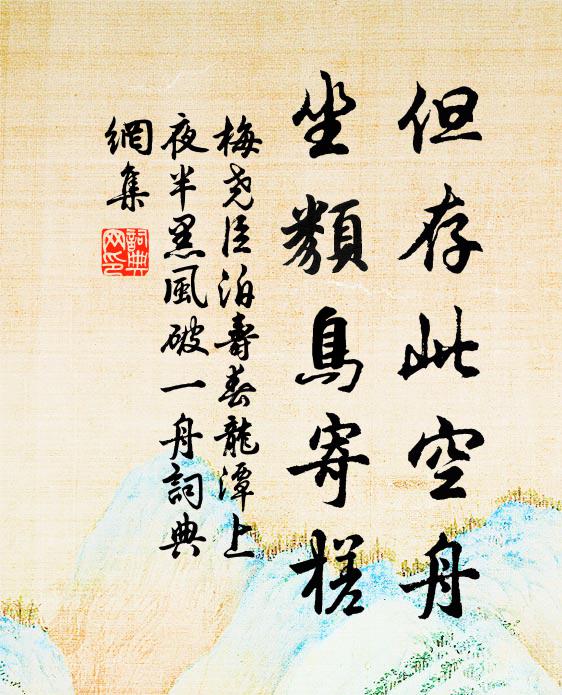 但存此空舟
坐類鳥寄槎
梅堯臣泊壽春龍潭上
夜半黑風破一舟詞典
網集
詞典
網印